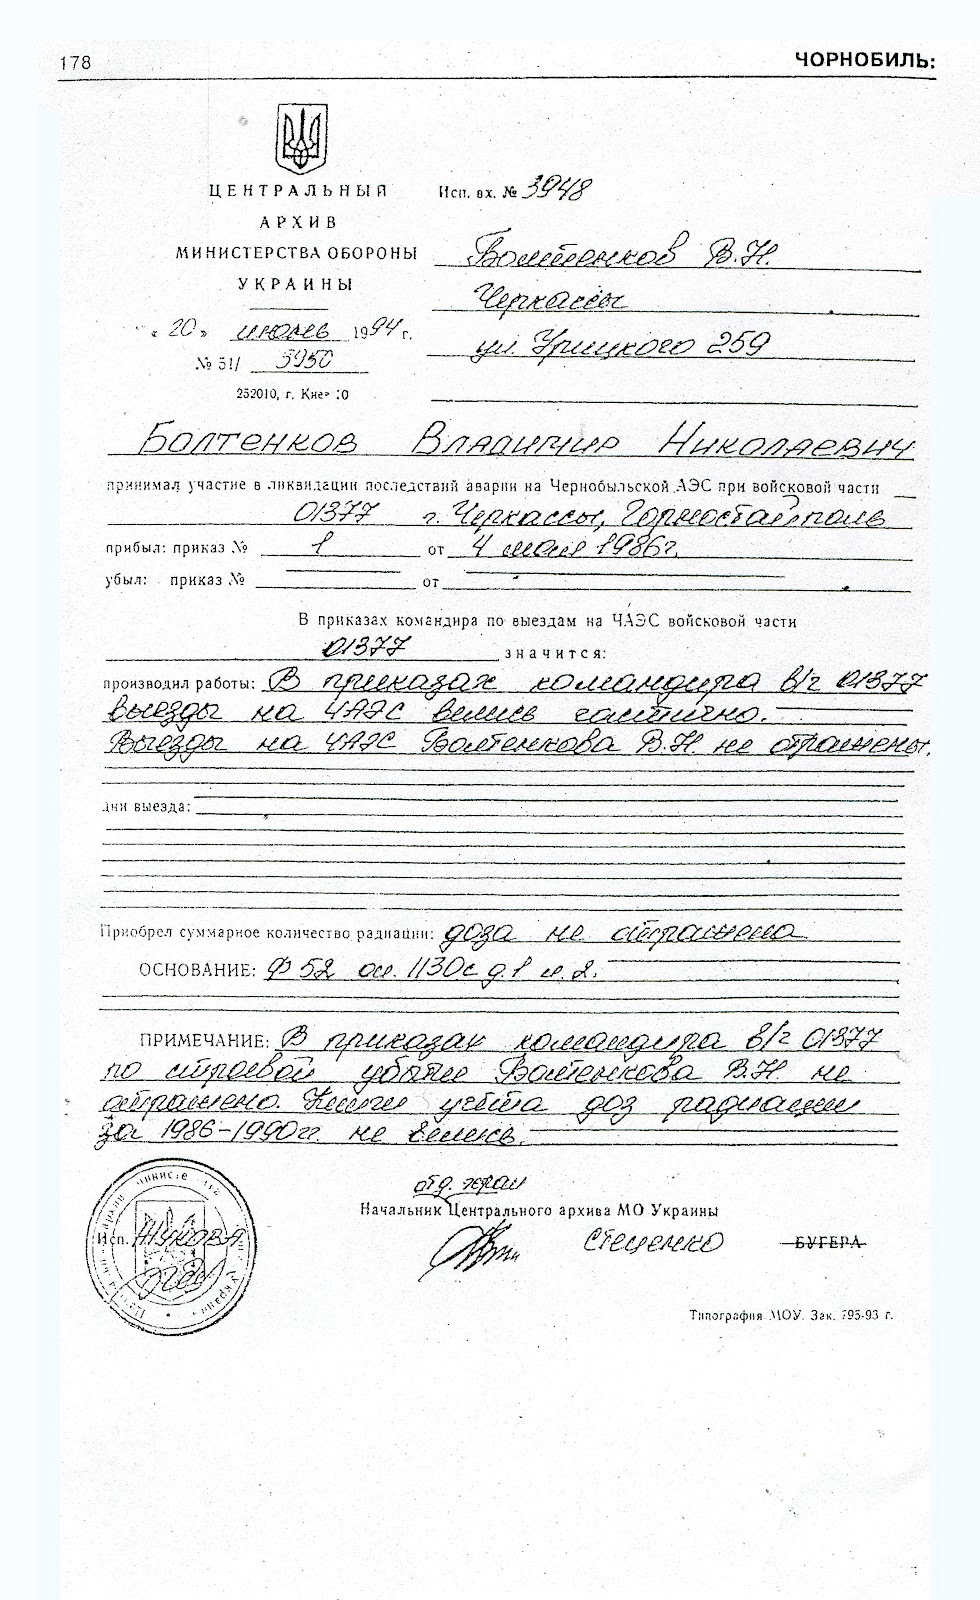 178
ЧОРНОБИЛЬ:
ЦЕНТРАЛЬНЫЙ
АРХИВ
МИНИСТЕРСТВА ОБОРОНЫ
УКРАИНЫ
« 20 » июнь 1994 г.
№ 51/ 3950
252010, г. Киев 10
Исп. вх. № 3948
Болтенков В.Н.
Черкассы
ул. Урицкого 259
Болтенков Владимир Николаевич
принимал участие в ликвидации последствий аварии на Чернобыльской АЭС при войсковой части
01377 г. Черкассы, Горностайполь
прибыл: приказ № 1 от 4 мая 1986г.
убыл: приказ № от
В приказах командира по выездам на ЧАЭС войсковой части
01377 значится:
производил работы: В приказах командира в/ч 01377
выезды на ЧАЭС велись частично.
Выезды на ЧАЭС Болтенкова В.Н не отражены.
дни выезда:
Приобрел суммарное количество радиации: доза не отражена
ОСНОВАНИЕ: Ф 52 оп. 1130с д.1 л.2.
ПРИМЕЧАНИЕ: В приказах командира в/ч 01377
по строевой убытие Болтенкова В.Н. не
отражено. Книги учёта доз радиации
за 1986-1990гг. не велись.
отд. хран
Начальник Центрального архива МО Украины
Стеценко БУГЕРА
Исп. Жукова
Типография МОУ. Зак. 795-93 г.